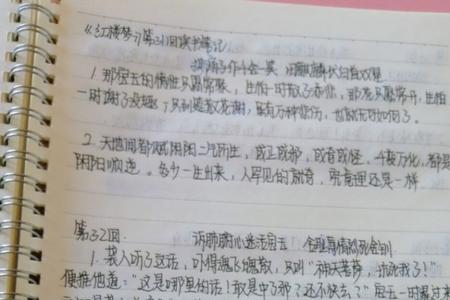 《红楼梦》第31回读书笔记
撕扇子作千金一笑 因麒麟伏白首双星
1 那宝玉的情性只愿常聚,生怕一时散了添悲,那花只愿常开,生怕
一时谢了没趣,只到筵散花谢,虽有万种悲伤,也就无可如何了。
2. 天地间都赋阴阳二气所生,或正或邪,或奇或怪,千变万化,都是
阴阳顺逆。多少一生出来,人罕见的就奇,究竟理还是一样
第32回: 诉肺腑心迷活宝玉 含耻辱情烈死金钏
1. 袭人听了这话,吓得魄飞魄散,只叫"神天菩萨,坑死我了!"
便推他道:"这是哪里的话!敢是中了邪?还不快去?"宝玉一时醒过来